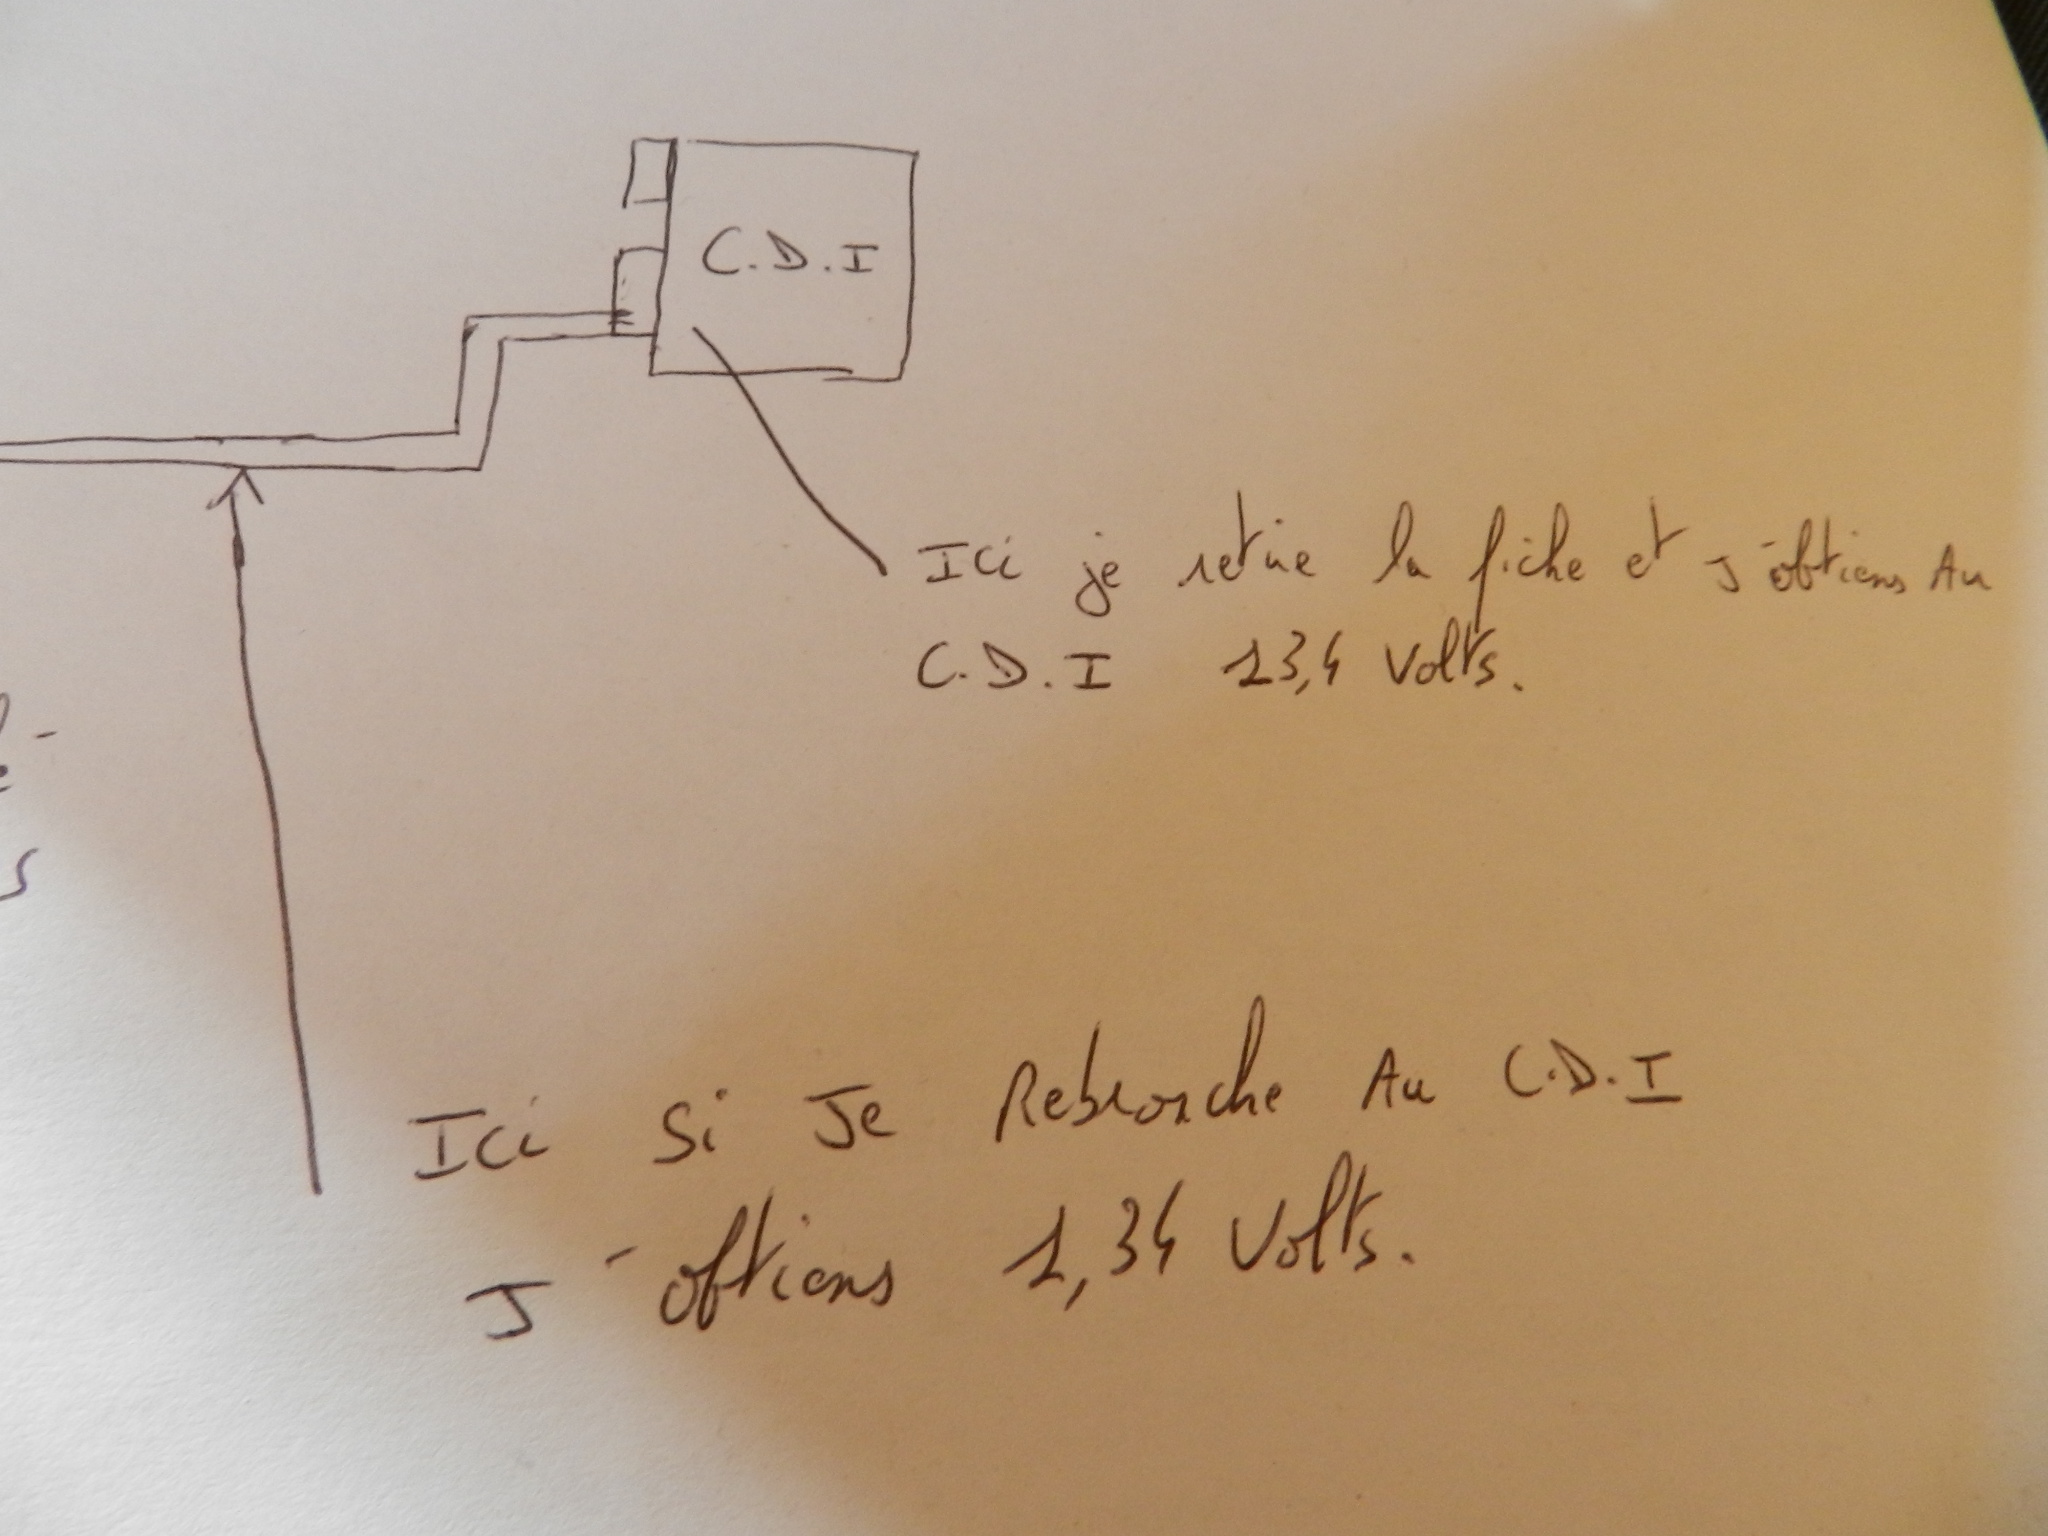 C.D.I
Ici je retire la fiche et J'obtiens Au
C.D.I 13,4 Volts.
Ici Si Je Rebranche Au C.D.I
J'obtiens 1,34 Volts.